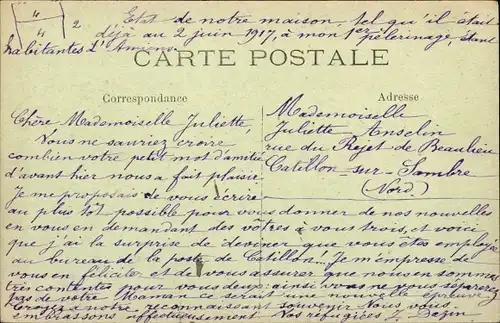 4
4
2
Etat de notre maison, tel qu'il était
déjà au 2 juin 1917, à mon 1er pèlerinage, étant
habitantes d'Amiens.
CARTE POSTALE
Correspondance
Adresse
Chère Mademoiselle Juliette,
Vous ne sauriez croire
combien votre petit mot d'amitié
d'avant hier nous a fait plaisir
Je me proposais de vous écrire
au plus tôt possible pour vous donner de nos nouvelles
en vous en demandant des vôtres à vous trois, et voici
que j'ai la surprise de deviner que vous êtes employée
au bureau de la poste de Catillon..! Je m'empresse de
vous en féliciter et de vous assurer que nous en sommes
très contentes pour vous deux: ainsi vous ne vous séparerez
pas de votre Maman. Ce serait une nouvelle épreuve!
Croyez à notre reconnaissant souvenir. Nous vous
embrassons affectueusement. Vos réfugiées J. Dezin
Mademoiselle
Juliette Anselin
rue du Rejet de Beaulieu
Catillon-sur-Sambre
(Nord)